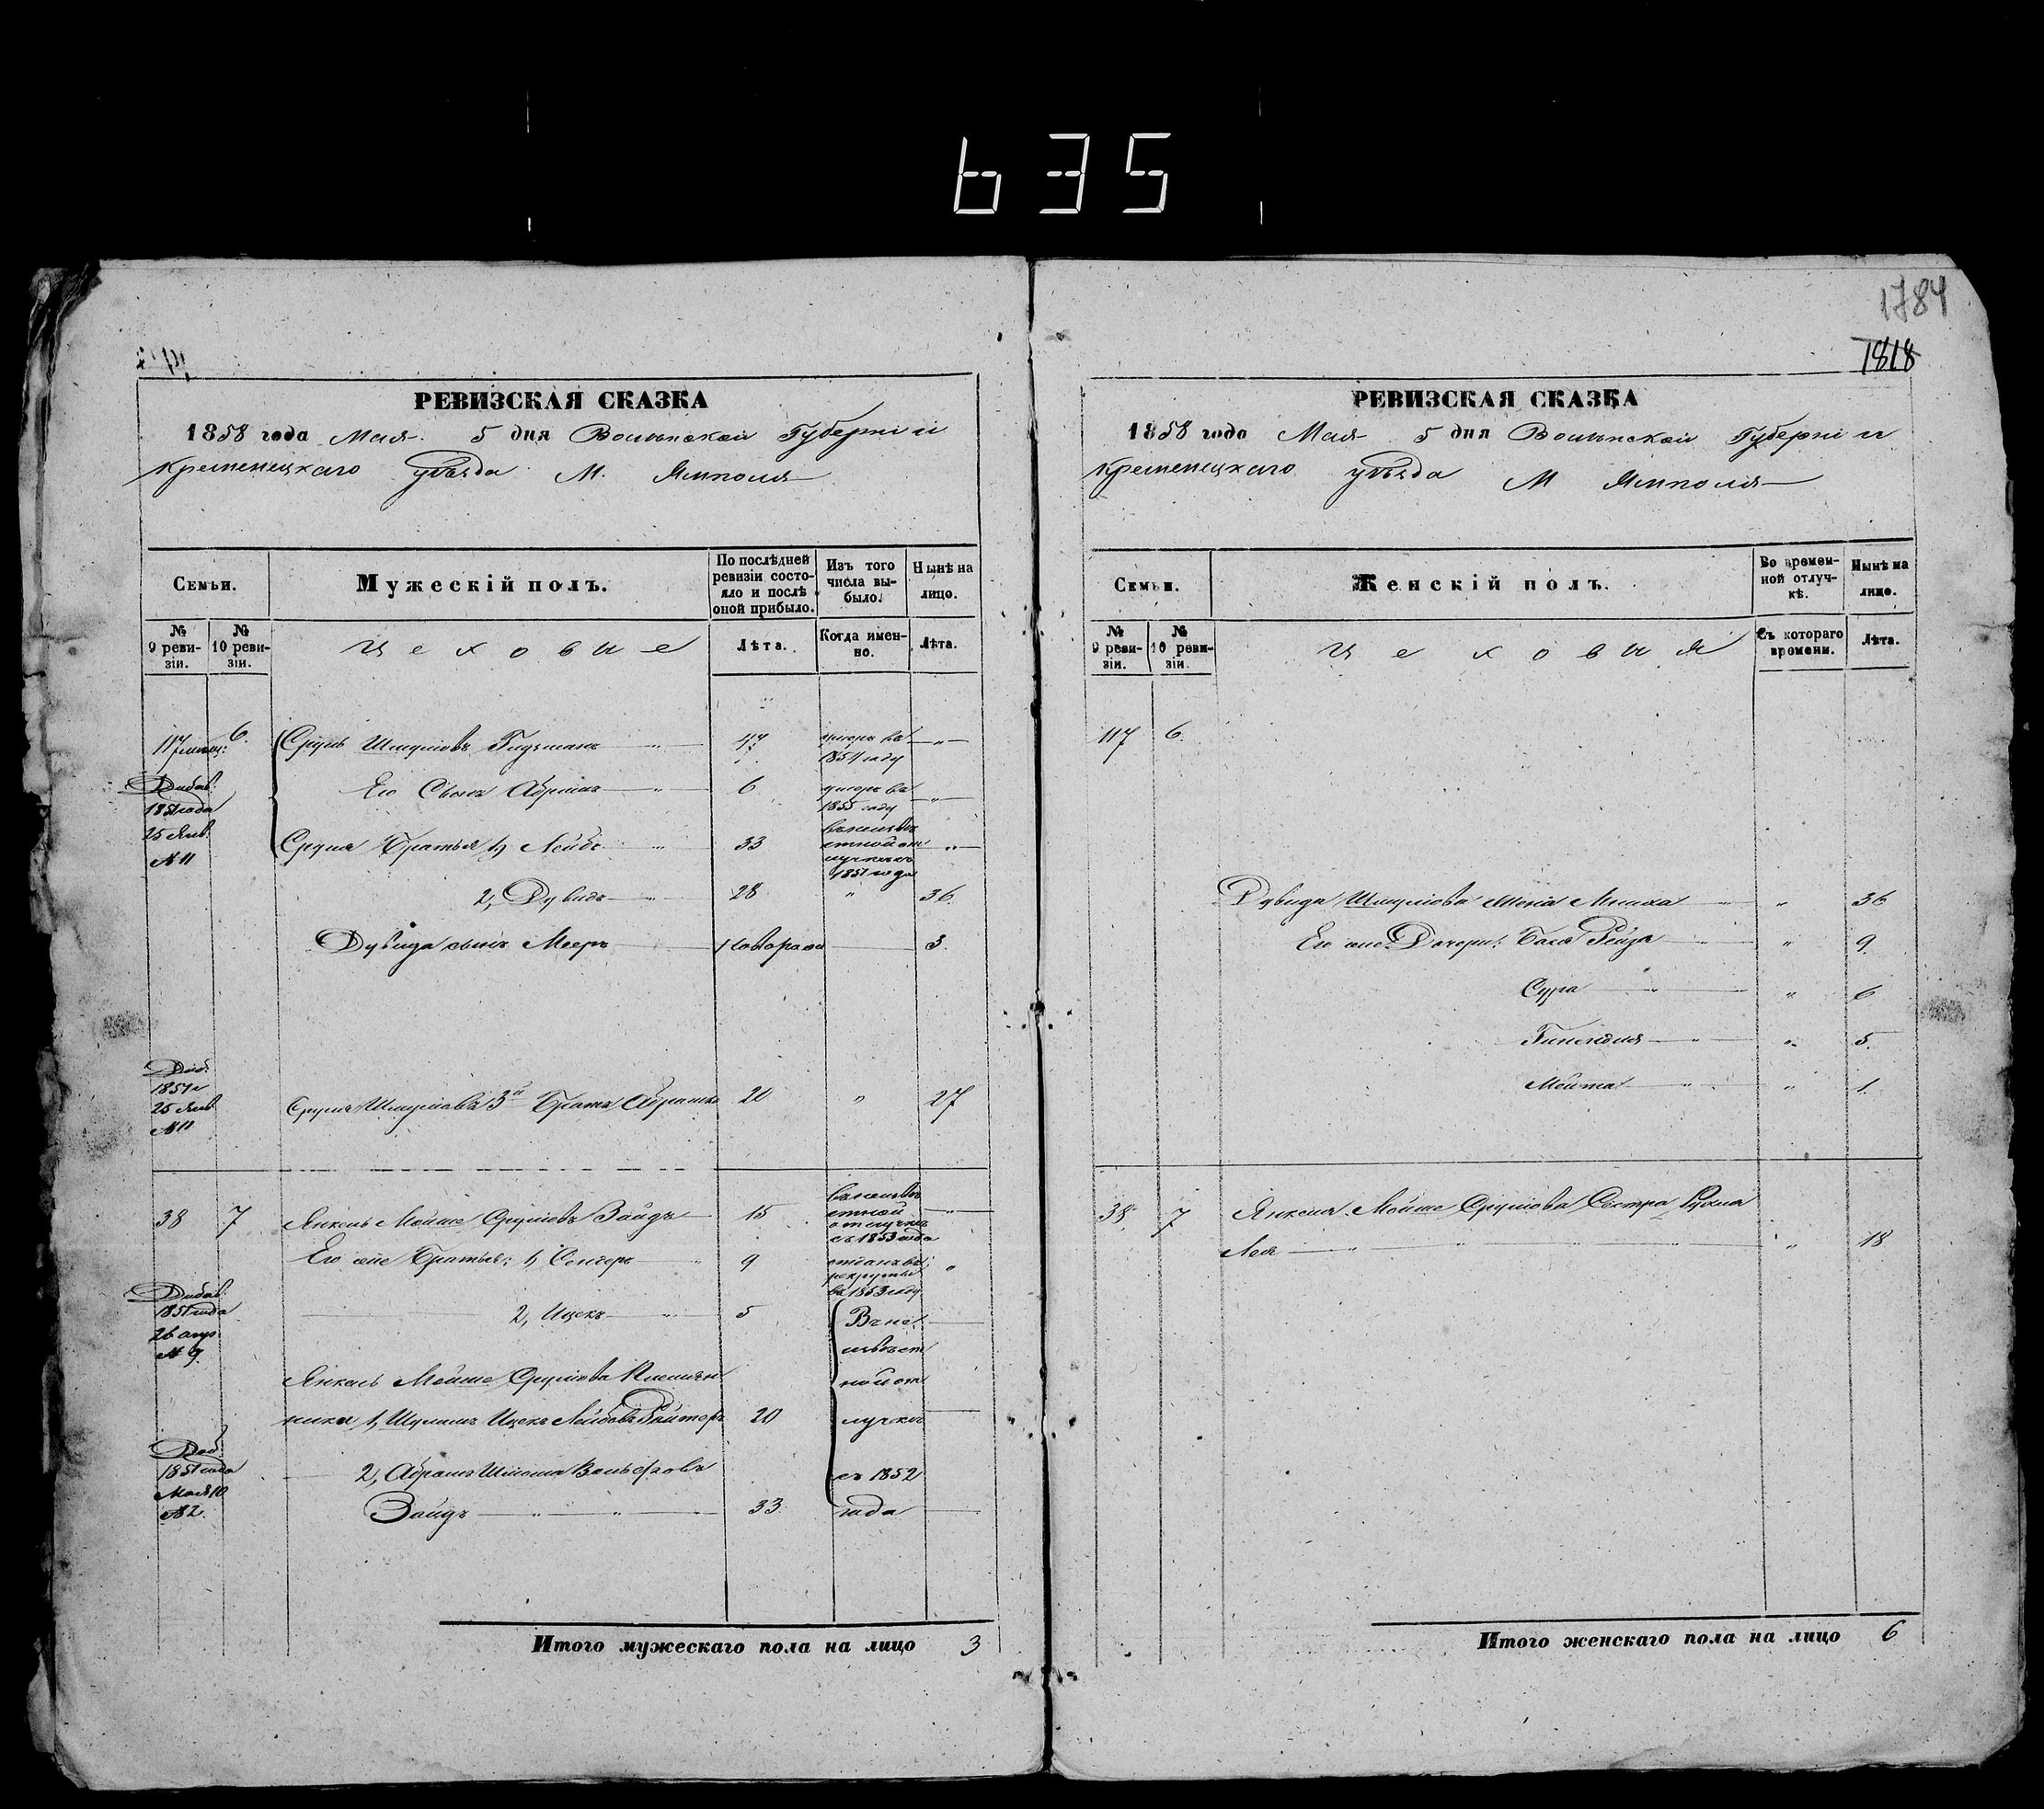 635
1784
1818
РЕВИЗСКАЯ СКАЗКА
1858 года Мая 5 дня Волынской Губерніи
Кременецкаго уѣзда М. Ямполя
Семьи.
Мужескій полъ.
По послѣдней ревизіи состояло и послѣ оной прибыло.
Изъ того числа выбыло.
Нынѣ на лицо.
№ 9 ревизіи.
№ 10 ревизіи.
Цеховые
Лѣта.
Когда именно.
Лѣта.
117 мѣщ: 6. Сруль Шмулювъ Гидзманъ 47 умеръ въ 1854 году
Добав. 1851 года 25 Янв. № 11
Его Сынъ Абрамъ 6 умеръ въ 1855 году
Сруля Братья 1, Лейба 33 въ неизвѣстной отлучкѣ съ 1851 года
2, Дувидъ 28 " 36.
Дувида сынъ Мееръ новорожд 3.
Доб. 1851 г 25 Янв № 11
Сруля Шмулювъ 3й Братъ Абрамко 20 " 27
38 7 Янкель Мойше Срулювъ Зайдъ 15 въ неизвѣстной отлучкѣ съ 1853 года
Его же Братья: 1, Сендеръ 9 отданъ въ рекруты въ 1853 году "
Добав. 1851 года 26 апр № 9.
2, Ицекъ 5 Въ не
извѣст
Янкель Мойше Срулюва Племян ной от
ники 1, Шулимъ Ицекъ Лейбовъ Райтеръ 20 лучкѣ
Доб. 1851 года Мая 10 № 2.
2, Абрамъ Шлёма Вольфовъ съ 1852
Зайдъ 33. года
Итого мужескаго пола на лицо 3
РЕВИЗСКАЯ СКАЗКА
1858 года Мая 5 дня Волынской Губерніи
Кременецкаго уѣзда М Ямполя
Семьи.
Женскій полъ.
Во временной отлучкѣ.
Нынѣ на лицо.
№ 9 ревизіи.
№ 10 ревизіи.
Цеховыя
Съ котораго времени.
Лѣта.
117 6.
Дувида Шмулюва жена Мниха " 36
Его же Дочери: Бася Рейза " 9.
Сура " 6
Гинендля " 5.
Мейта " 1.
38. 7 Янкеля Мойше Срулюва Сестра Рухля
Лея " 18
Итого женскаго пола на лицо 6